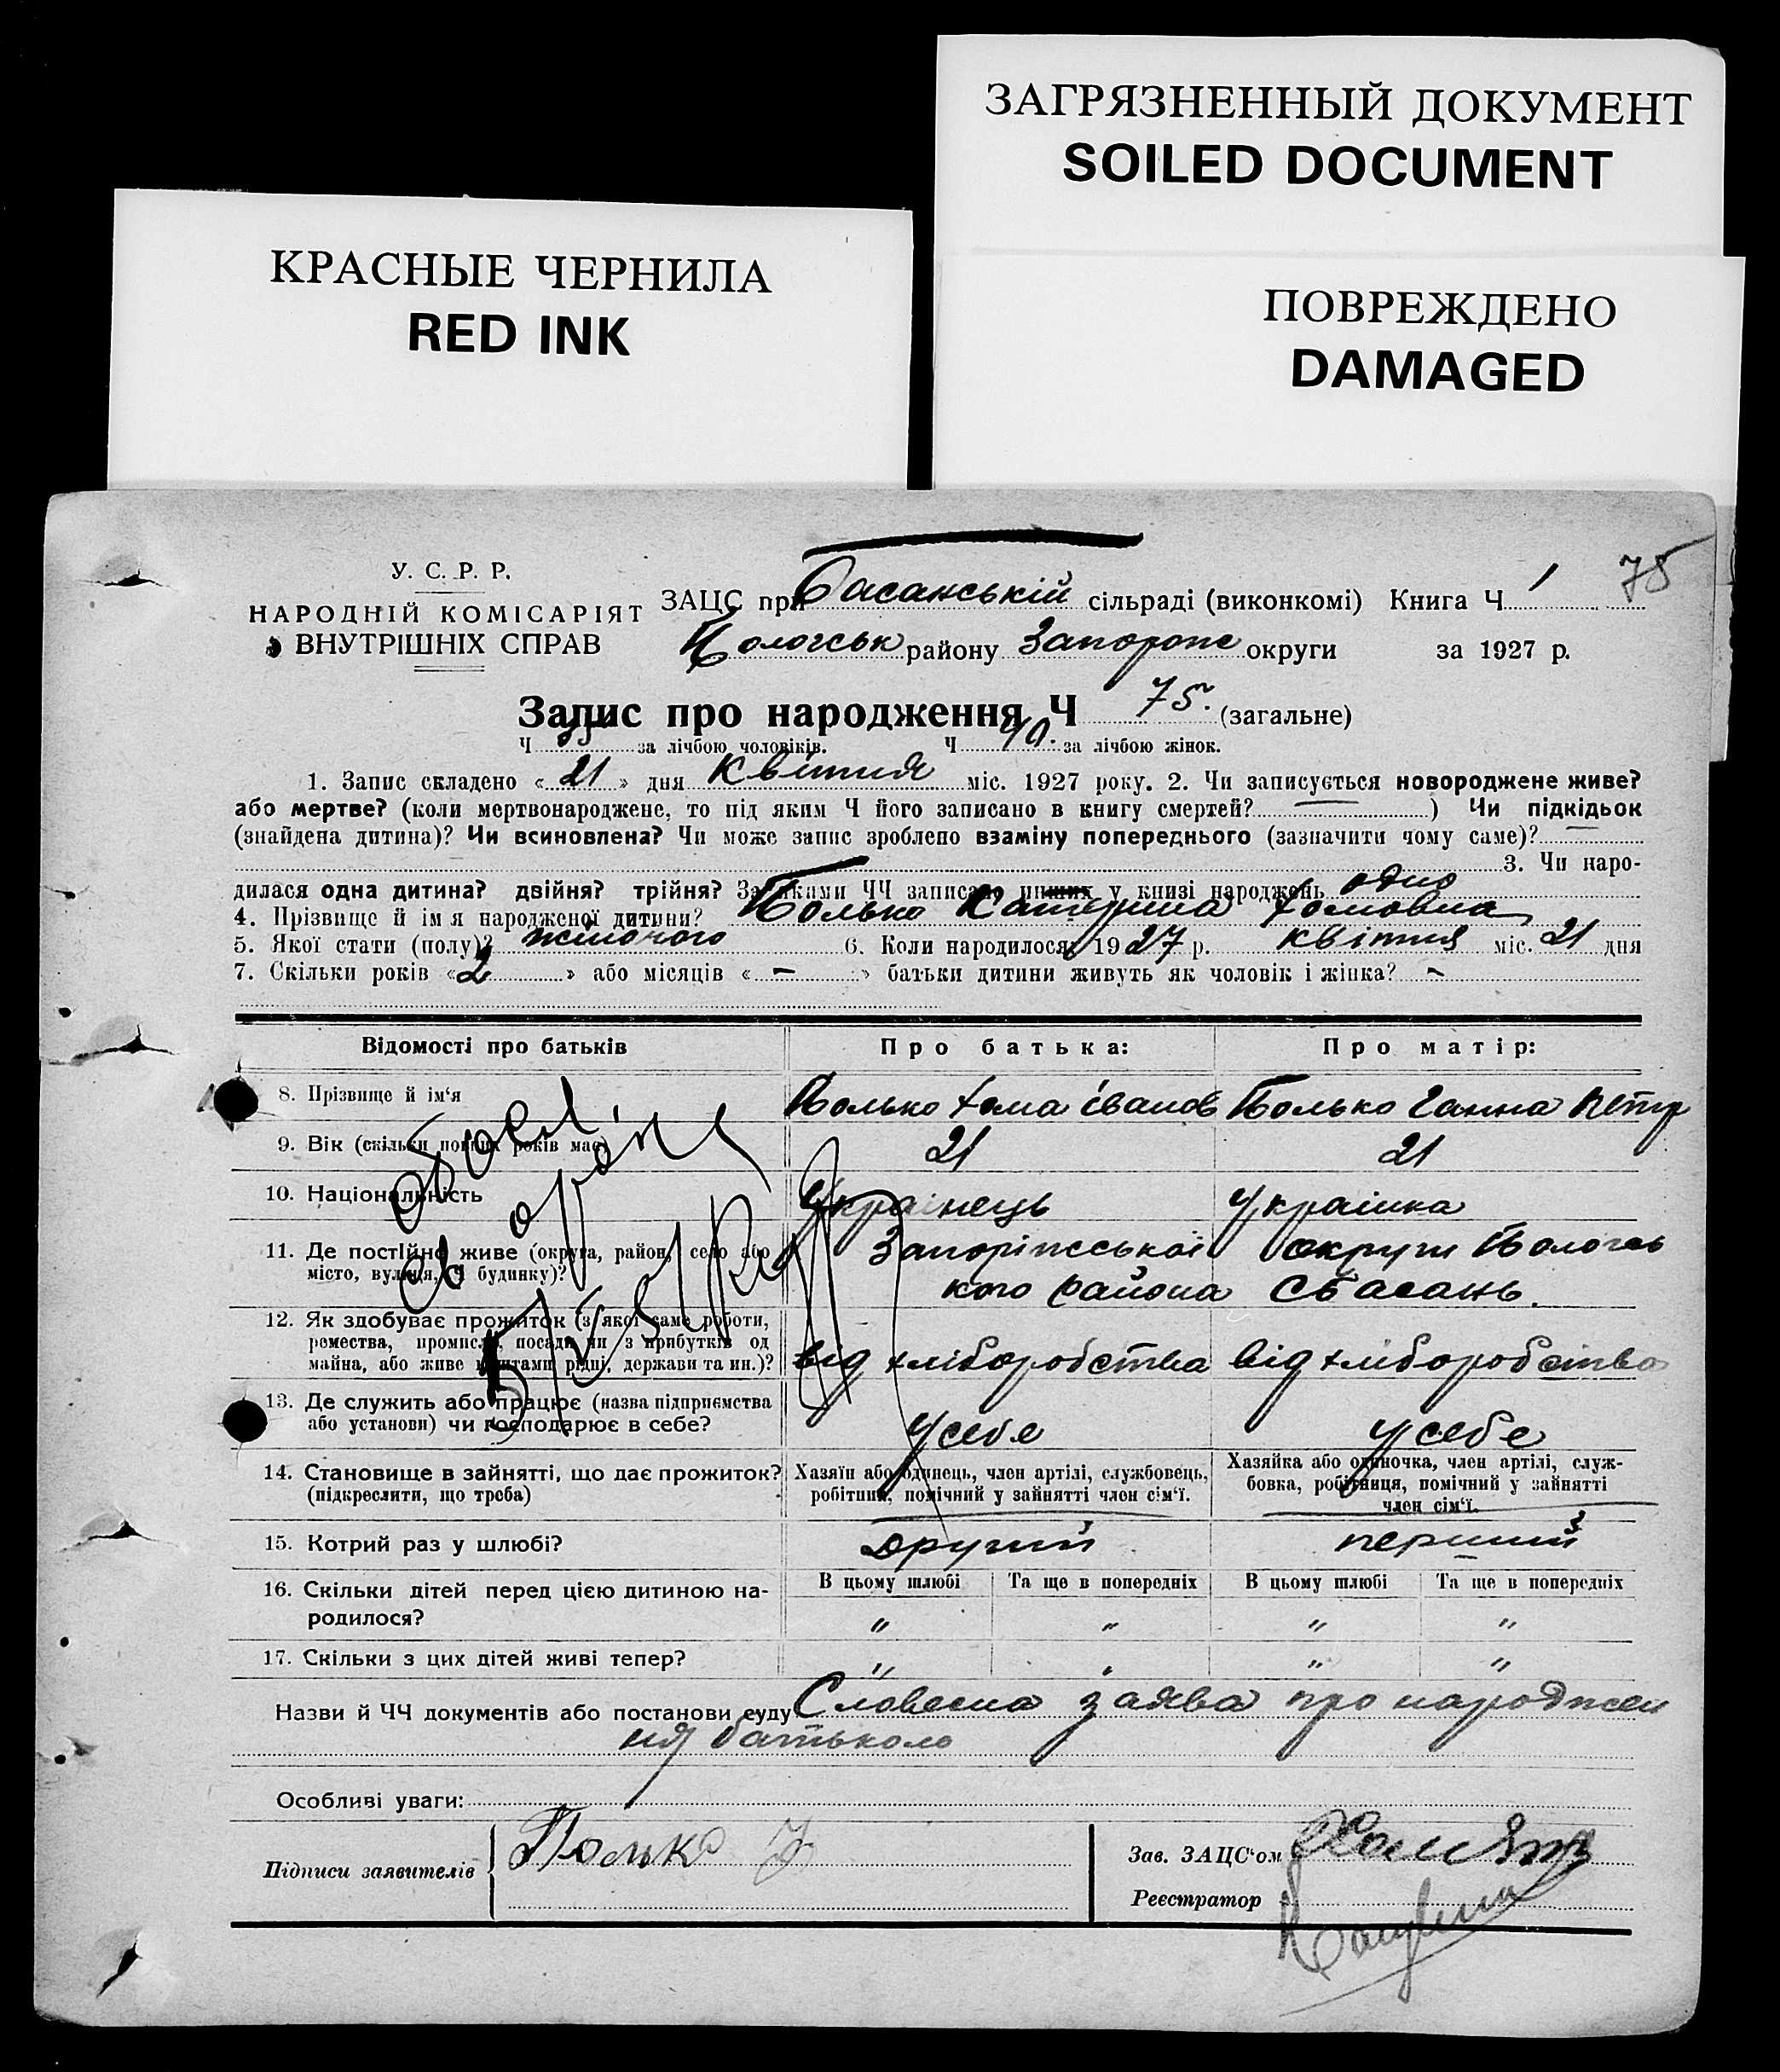 ЗАГРЯЗНЕННЫЙ ДОКУМЕНТ
SOILED DOCUMENT
КРАСНЫЕ ЧЕРНИЛА
RED INK
ПОВРЕЖДЕНО
DAMAGED
75
У. С. Р. Р.
НАРОДНІЙ КОМІСАРІЯТ
ВНУТРІШНІХ СПРАВ
ЗАЦС при Басанській сільраді (виконкомі) Книга Ч 1
Пологськ району Запорож округи за 1927 р.
Запис про народження Ч 75. (загальне)
Ч 35 за лічбою чоловіків. Ч 40. за лічбою жінок.
1. Запис складено « 21 » дня квітня міс. 1927 року. 2. Чи записується новороджене живе?
або мертве? (коли мертвонароджене, то під яким Ч його записано в книгу смертей? — ) Чи підкідьок
(знайдена дитина)? Чи всиновлена? Чи може запис зроблено взаміну попереднього (зазначити чому саме)? —
3. Чи наро-
дилася одна дитина? двійня? трійня? За якими ЧЧ записано инших у книзі народжень одно
4. Прізвище й ім'я народженої дитини? Полько Катерина Хомовна
5. Якої стати (полу)? жіночого 6. Коли народилося? 1927 р. квітня міс. 21 дня
7. Скільки років « 2 » або місяців « — » батьки дитини живуть як чоловік і жінка? —
Відомості про батьків Про батька: Про матір:
8. Прізвище й ім'я Полько Хома Іванов Полько Ганна Петр
9. Вік (скільки повних років має) 21 21
10. Національність Українець Українка
11. Де постійно живе (округа, район, село або Запоріжської округи Пологсь
місто, вулиця, Ч будинку)? кого района С Басань.
12. Як здобуває прожиток (з якої саме роботи,
ремества, промисла, посади чи з прибутків од
майна, або живе коштами рідні, держави та ин.)? від хліборобства від хліборобства
13. Де служить або працює (назва підприємства
або установи) чи господарює в себе? у себе у себе
14. Становище в зайнятті, що дає прожиток?
(підкреслити, що треба)
Хазяїн або одинець, член артілі, службовець,
робітник, помічний у зайнятті член сім'ї.
Хазяйка або одиночка, член артілі, служ-
бовка, робітниця, помічний у зайнятті
член сім'ї.
15. Котрий раз у шлюбі? другий перший
16. Скільки дітей перед цією дитиною на-
родилося?
В цьому шлюбі Та ще в попередніх В цьому шлюбі Та ще в попередніх
" " " "
17. Скільки з цих дітей живі тепер? " " " "
Назви й ЧЧ документів або постанови суду Словесна заява про народжен
ня батьком
Особливі уваги:
Підписи заявителів Полько Х
Зав. ЗАЦС'ом
Реєстратор